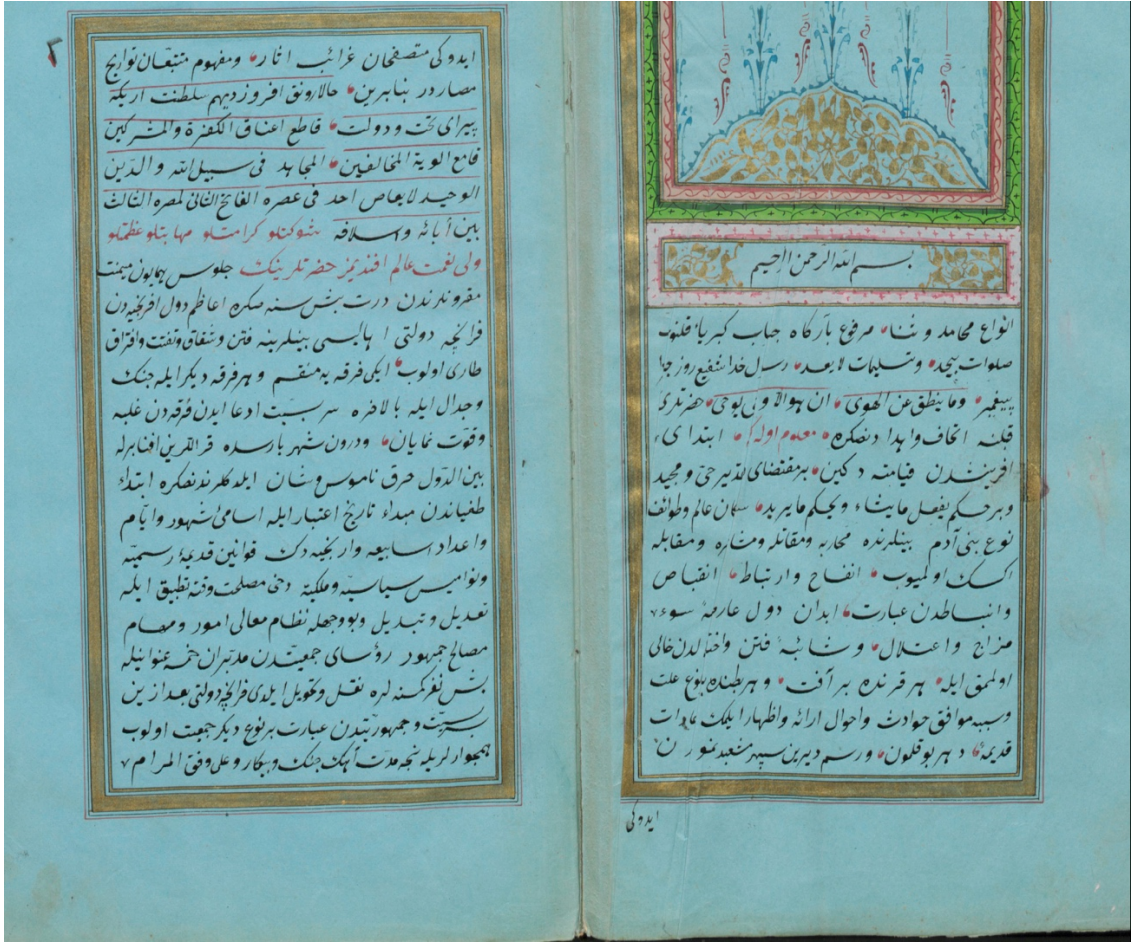 بسم الله الرحمن الرحيم
انواع محامد وثنا مرفوع بارگاه جناب كبريا قلنوب
صلوات بيحد وتسليمات لا يعد رسول خدا شفيع روز جزا
پيغمبر وما ينطق عن الهوى ان هو الا وحى يوحى حضرتلرى
قلنه اتحاف واهدا دنصكره معلوم اوله كه ابتداى
افرينشدن قيامته دكين بر مقتضاى تقدير حى ومجيد
وبر حكم يفعل ما يشاء ويحكم ما يريد سكان عالم وطوائف
نوع بنى آدم بينلرنده محاربه ومقاتله ومشاره ومقابله
اكسك اولميوب انفتاح وارتباط انقباض
وانبساطدن عبارت ابدان دول عارضهٔ سوء
مزاج واعتلال وشائبهٔ فتن واختلالدن خالى
اولمق ايله هر قرنده بر آفت وهر بطنده بلوغ علت
وسببه موافق حوادث واحوال ارائه واظهار ايلمك عادات
قديمهٔ دهر بوقلمون ورسم ديرين سپهر
ايدوكى
٢
ايدوكى متصفحان غرائب اثار ومفهوم متتبعان تواريخ
مصاردر بنابرين حالا رونق افروز ديهيم سلطنت اريكه
پيراى تخت ودولت قاطع اعناق الكفرة والمشركين
قامع الوية المخالفين المجاهد فى سبيل الله والدين
الوحيد لا يعاص احد فى عصره الفاتح الثانى لمصره الثالث
بين أبائه واسلافه شوكتلو كرامتلو مهابتلو عظمتلو
ولى نعمت عالم افنديمز حضرتلرينك جلوس همايون ميمنت
مقرونلرندن درت بش سنه صكره اعاظم دول افرنجيه دن
فرانچه دولتى اهاليسى بينلرينه فتن وشقاق وتفتت وافتراق
طارى اولوب ايكى فرقه يه منقسم وهر فرقه ديكر ايله جنك
وجدال ايله بالاخره سربست ادعا ايدن فرقه دن غلبه
وقوت نمايان ودرون شهر پارسده قراللرين افنا برله
بين الدول خرق ناموس وشان ايلدكلرندنصكره ابتداء
طغياندن مبداء تاريخ اعتبار ايله اسامى شهور وايام
واعداد اسابيعه وارنجيه دك قوانين قديمهٔ رسميه
ونواميس سياسيه وملكيه دخى مصلحت وقته تطبيق ايله
تعديل وتبديل وبو وجهله نظام معالى امور ومهام
مصالح جمهور رؤساى جمعيتدن مدبران خمسه عنوانيله
بش نفر كمسنه لره نقل وتحويل ايلدى فرانچه دولتى بعد ازين
سربستيت وجمهوريتدن عبارت بر نوع ديكر جمعيت اولوب
همجوارلريله نجه مدت آهنك جنك وپيكار وعلى وفق المرام